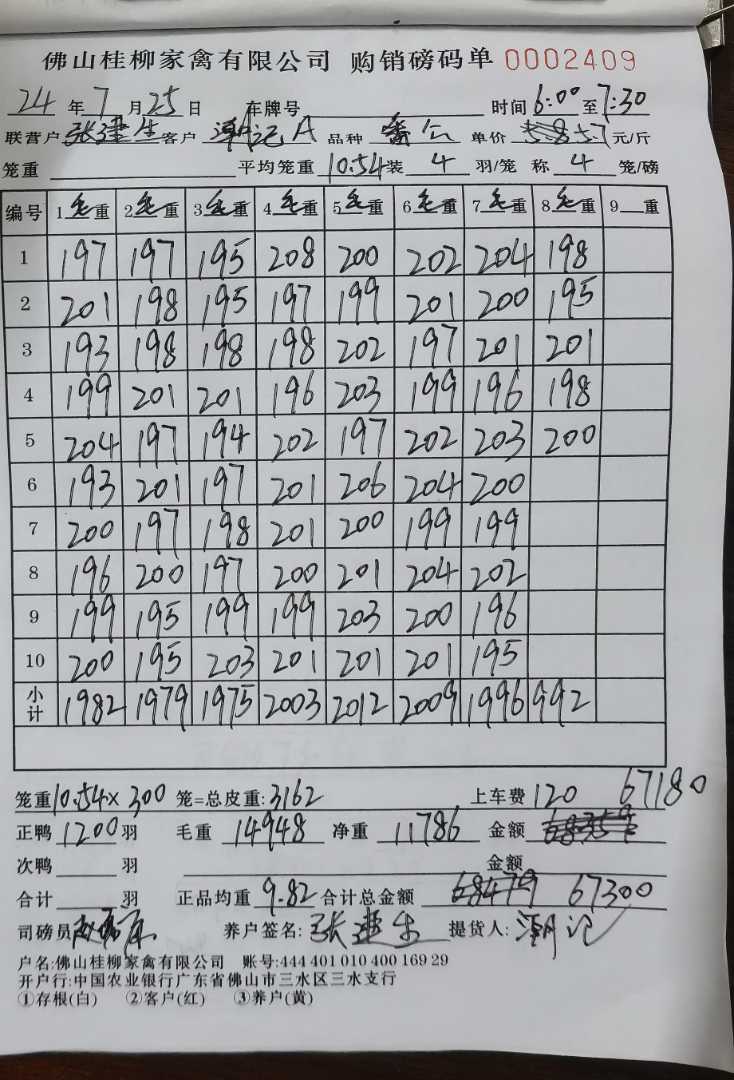 佛山桂柳家禽有限公司 购销磅码单 0002409
24年7月25日 车牌号 时间6:00至7:30
联营户张建生客户潮记A 品种番公 单价5.7元/斤
笼重 平均笼重10.54装4羽/笼 称4笼/磅
编号 1毛重 2毛重 3毛重 4毛重 5毛重 6毛重 7毛重 8毛重 9重
1 197 197 195 208 200 202 204 198
2 201 198 195 197 199 201 200 195
3 193 198 198 198 202 197 201 201
4 199 201 201 196 203 199 196 198
5 204 197 194 202 197 202 203 200
6 193 201 197 201 206 204 200
7 200 197 198 201 200 199 199
8 196 200 197 200 201 204 202
9 199 195 199 199 203 200 196
10 200 195 203 201 201 201 195
小计 1982 1979 1975 2003 2012 2009 1996 992
笼重10.54×300笼=总皮重:3162 上车费120 67180
正鸭1200羽 毛重14948 净重11786 金额68359
次鸭 羽 金额
合计 羽 正品均重9.82合计总金额68479 67300
司磅员 养户签名:张建生 提货人:潮记
户名:佛山桂柳家禽有限公司 账号:444 401 010 400 169 29
开户行:中国农业银行广东省佛山市三水区三水支行
①存根(白) ②客户(红) ③养户(黄)